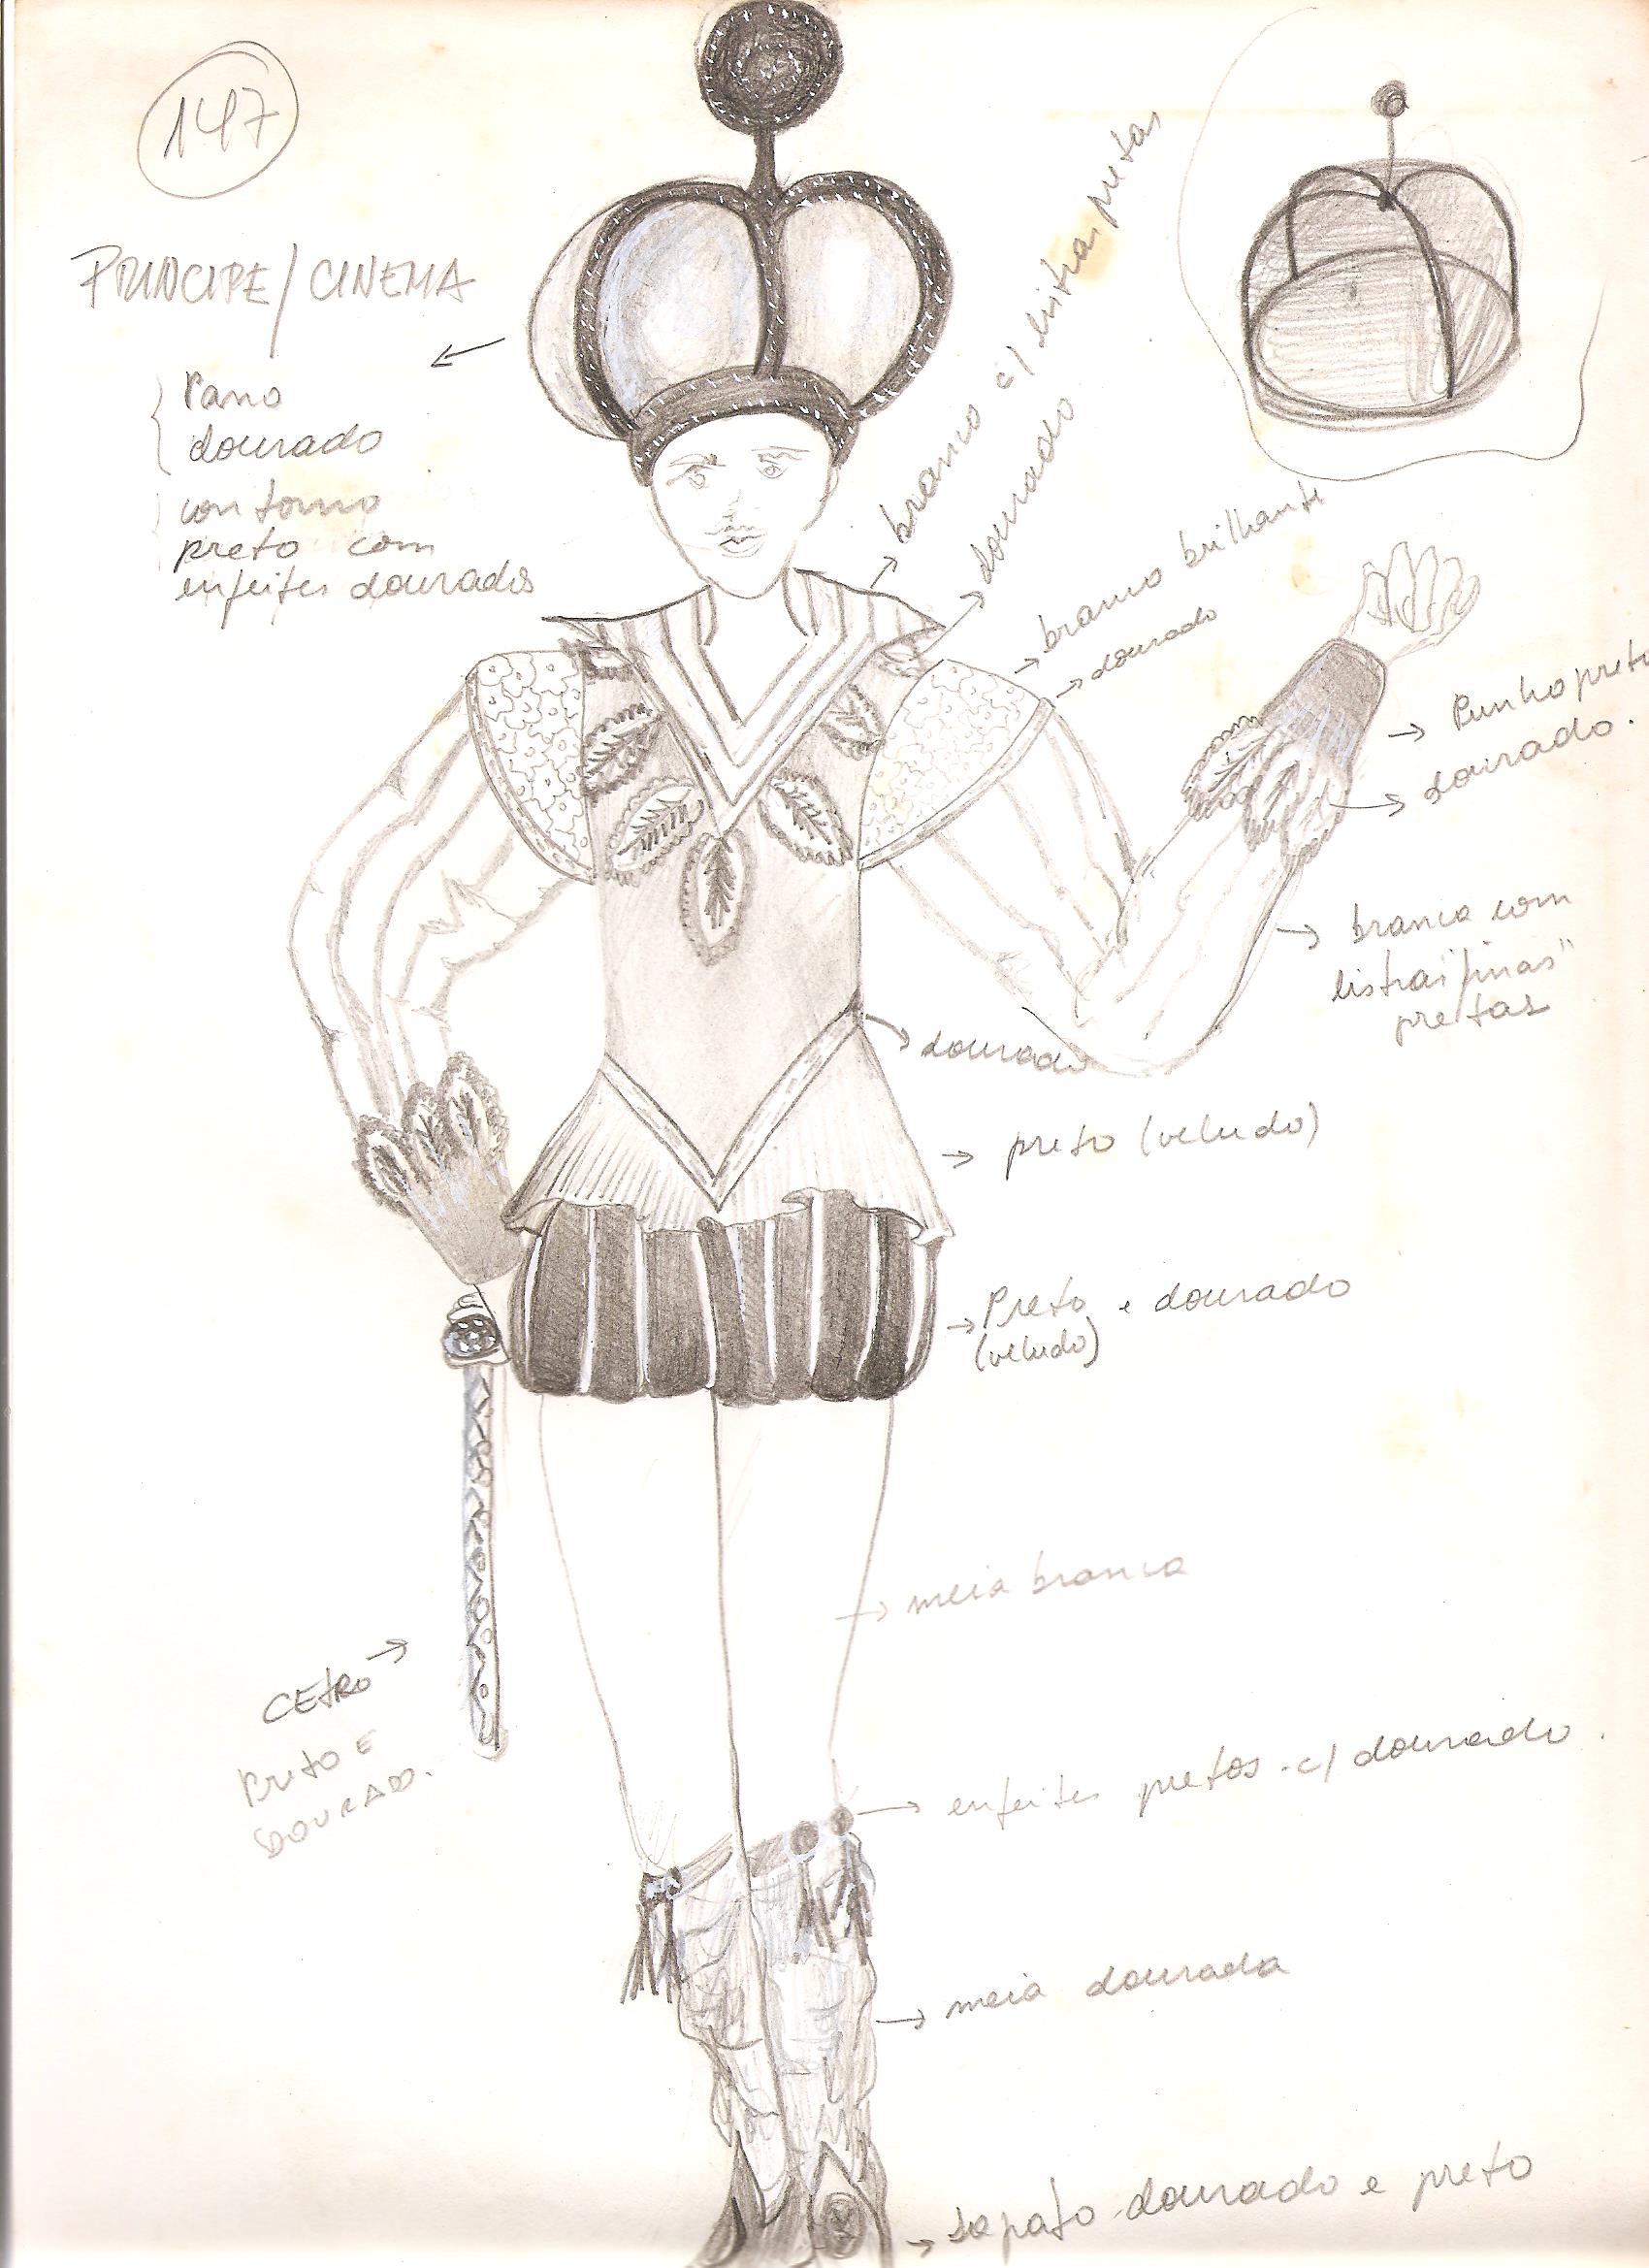 147
PRINCIPE/CINEMA
Pano
dourado
contorno
preto com
enfeites dourados
branco c/ listras pretas
dourado
branco brilhante
dourado
Punho preto
dourado.
branca com
listras "finas"
pretas
dourado
preto (veludo)
Preto e dourado
(veludo)
meia branca
CETRO
Preto E
DOURADO.
enfeites pretos c/ dourado.
meia dourada
sapato dourado e preto